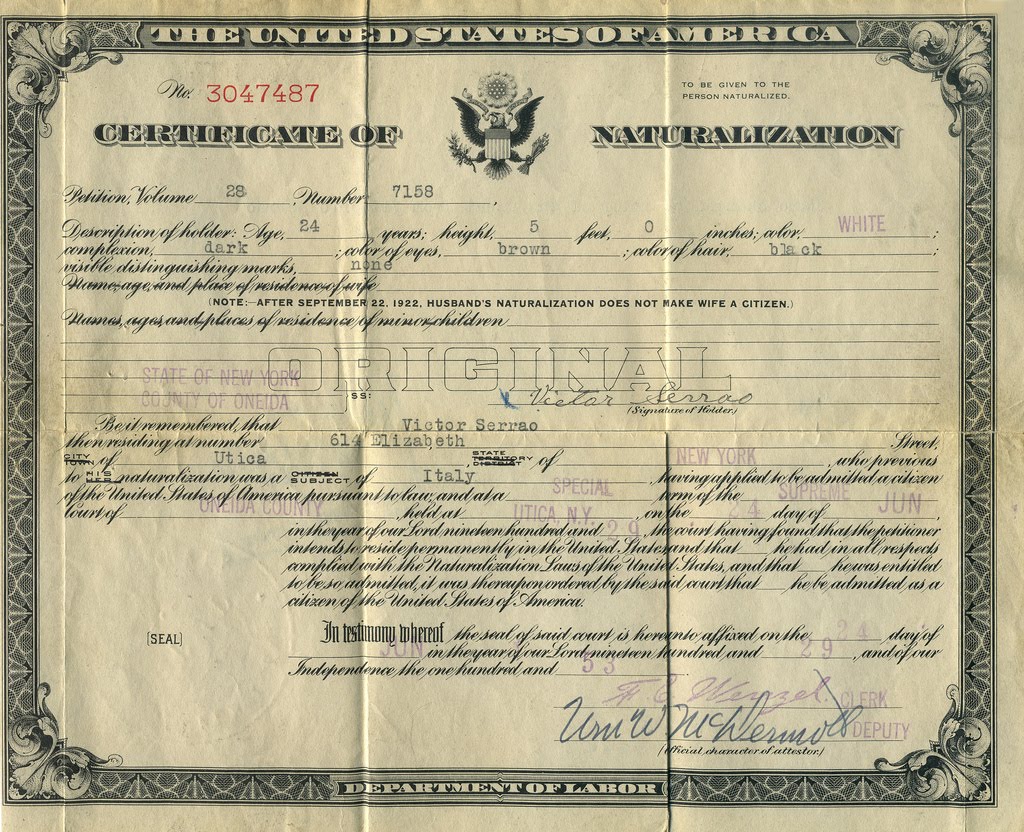 THE UNITED STATES OF AMERICA
No. 3047487
TO BE GIVEN TO THE
PERSON NATURALIZED.
CERTIFICATE OF NATURALIZATION
Petition, Volume 28, Number 7158,
Description of holder: Age, 24 years; height, 5 feet, 0 inches; color, WHITE;
complexion, dark; color of eyes, brown; color of hair, black;
visible distinguishing marks, none
Name, age, and place of residence of wife
(NOTE:—AFTER SEPTEMBER 22, 1922, HUSBAND'S NATURALIZATION DOES NOT MAKE WIFE A CITIZEN.)
Names, ages, and places of residence of minor children
ORIGINAL
STATE OF NEW YORK
COUNTY OF ONEIDA
SS: Victor Serrao
(Signature of Holder)
Be it remembered, that Victor Serrao
then residing at number 614 Elizabeth Street,
CITY TOWN of Utica STATE TERRITORY DISTRICT of NEW YORK, who previous
to HIS HER naturalization was a CITIZEN SUBJECT of Italy, having applied to be admitted a citizen
of the United States of America pursuant to law, and at a SPECIAL term of the SUPREME
Court of ONEIDA COUNTY, held at UTICA, N.Y. on the 24 day of JUN,
in the year of our Lord nineteen hundred and 29, the court having found that the petitioner
intends to reside permanently in the United States and that he had in all respects
complied with the Naturalization Laws of the United States, and that he was entitled
to be so admitted, it was thereupon ordered by the said court that he be admitted as a
citizen of the United States of America.
[SEAL]
In testimony whereof the seal of said court is hereunto affixed on the 24 day of
JUN in the year of our Lord nineteen hundred and 29, and of our
Independence the one hundred and 53
F. C. Wenzel. CLERK
Wm W McDermott DEPUTY
(Official character of attestor.)
DEPARTMENT OF LABOR